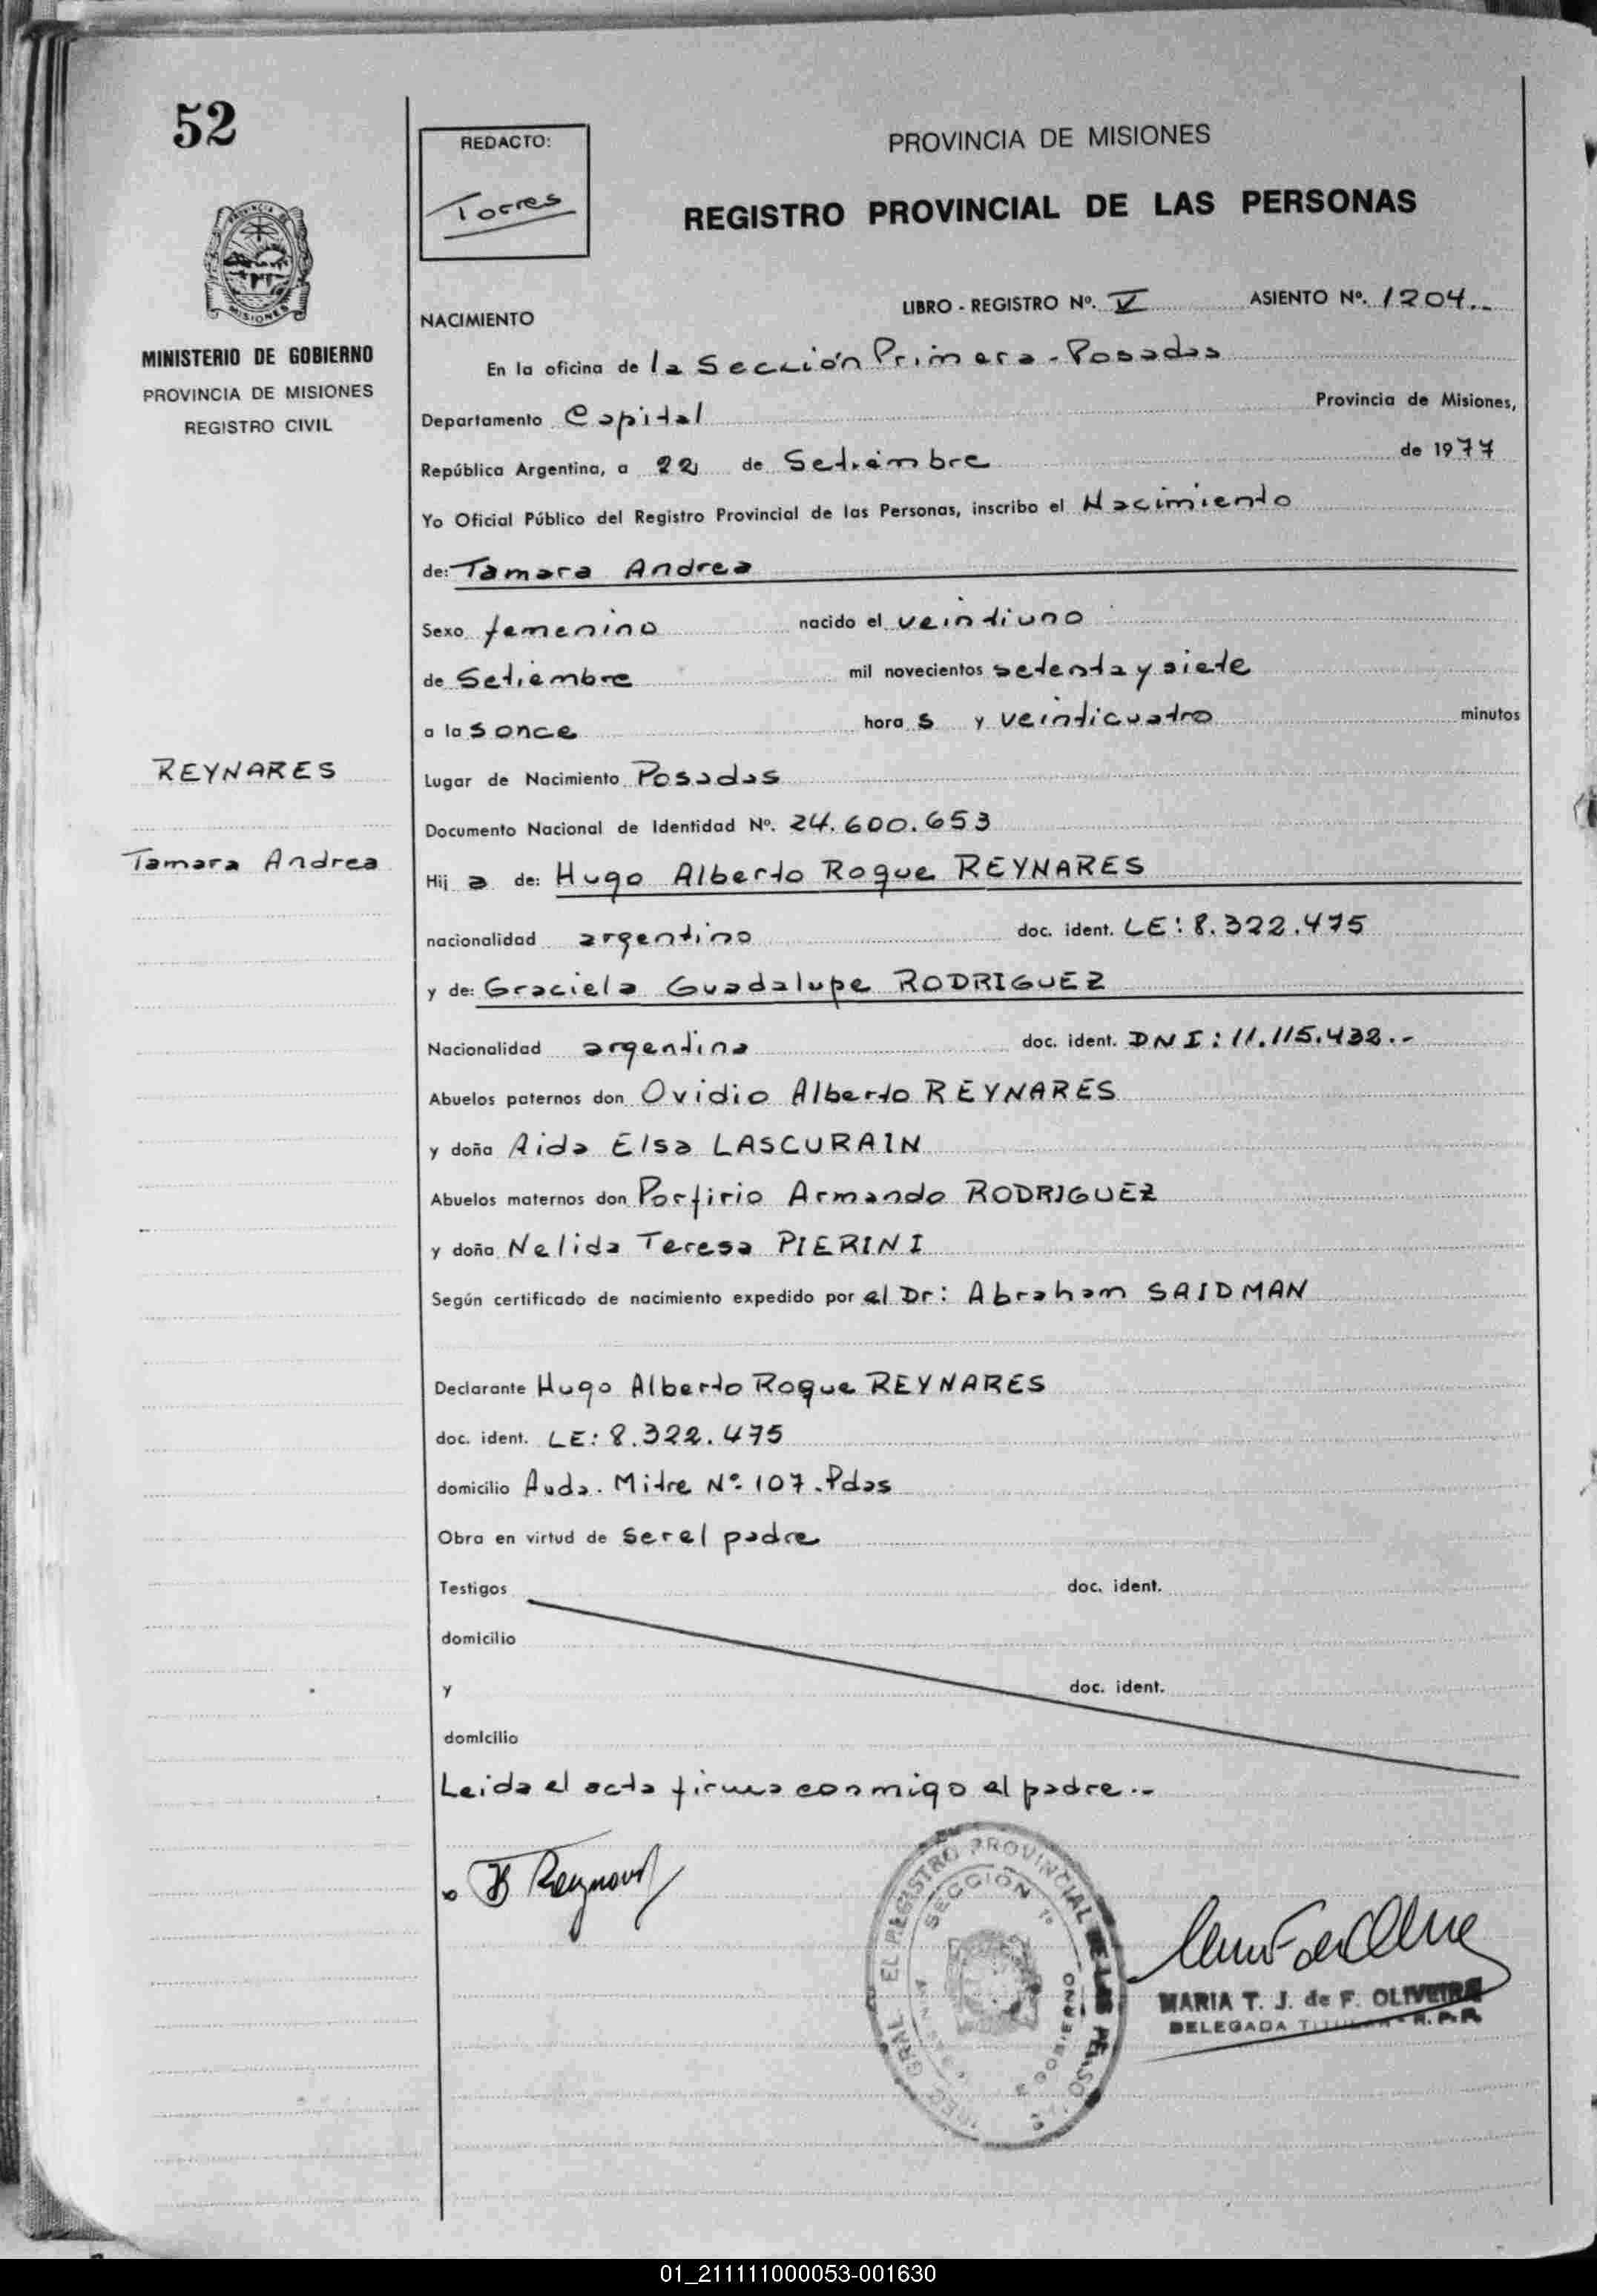 52
REDACTO:
Torres
PROVINCIA DE MISIONES
REGISTRO PROVINCIAL DE LAS PERSONAS
PROVINCIA DE
MISIONES
MINISTERIO DE GOBIERNO
PROVINCIA DE MISIONES
REGISTRO CIVIL
NACIMIENTO
LIBRO - REGISTRO Nº. V ASIENTO Nº. 1204.-
En la oficina de la Sección Primera - Posadas
Departamento Capital Provincia de Misiones,
República Argentina, a 22 de Setiembre de 1977
Yo Oficial Público del Registro Provincial de las Personas, inscribo el Nacimiento
de: Tamara Andrea
Sexo femenino nacido el veintiuno
de Setiembre mil novecientos setenta y siete
a las once horas y veinticuatro minutos
REYNARES
Lugar de Nacimiento Posadas
Documento Nacional de Identidad Nº. 24.600.653
Tamara Andrea
Hija de: Hugo Alberto Roque REYNARES
nacionalidad argentino doc. ident. LE: 8.322.475
y de: Graciela Guadalupe RODRIGUEZ
Nacionalidad argentina doc. ident. DNI: 11.115.432.-
Abuelos paternos don Ovidio Alberto REYNARES
y doña Aida Elsa LASCURAIN
Abuelos maternos don Porfirio Armando RODRIGUEZ
y doña Nelida Teresa PIERINI
Según certificado de nacimiento expedido por el Dr: Abraham SAIDMAN
Declarante Hugo Alberto Roque REYNARES
doc. ident. LE: 8.322.475
domicilio Avda. Mitre Nº 107. Pdas
Obra en virtud de ser el padre
Testigos doc. ident.
domicilio
y doc. ident.
domicilio
Leida el acta firma conmigo el padre.-
EL REGISTRO PROVINCIAL DE LAS
SECCIÓN 1º
GOBIERNO
MARIA T. J. de F. OLIVEIRA
DELEGADA TITULAR - R. P. P.
01_211111000053-001630